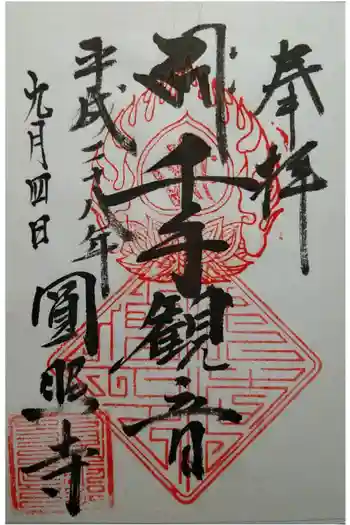 奉拝
千手観音
平成二十八年
九月四日
圓照寺